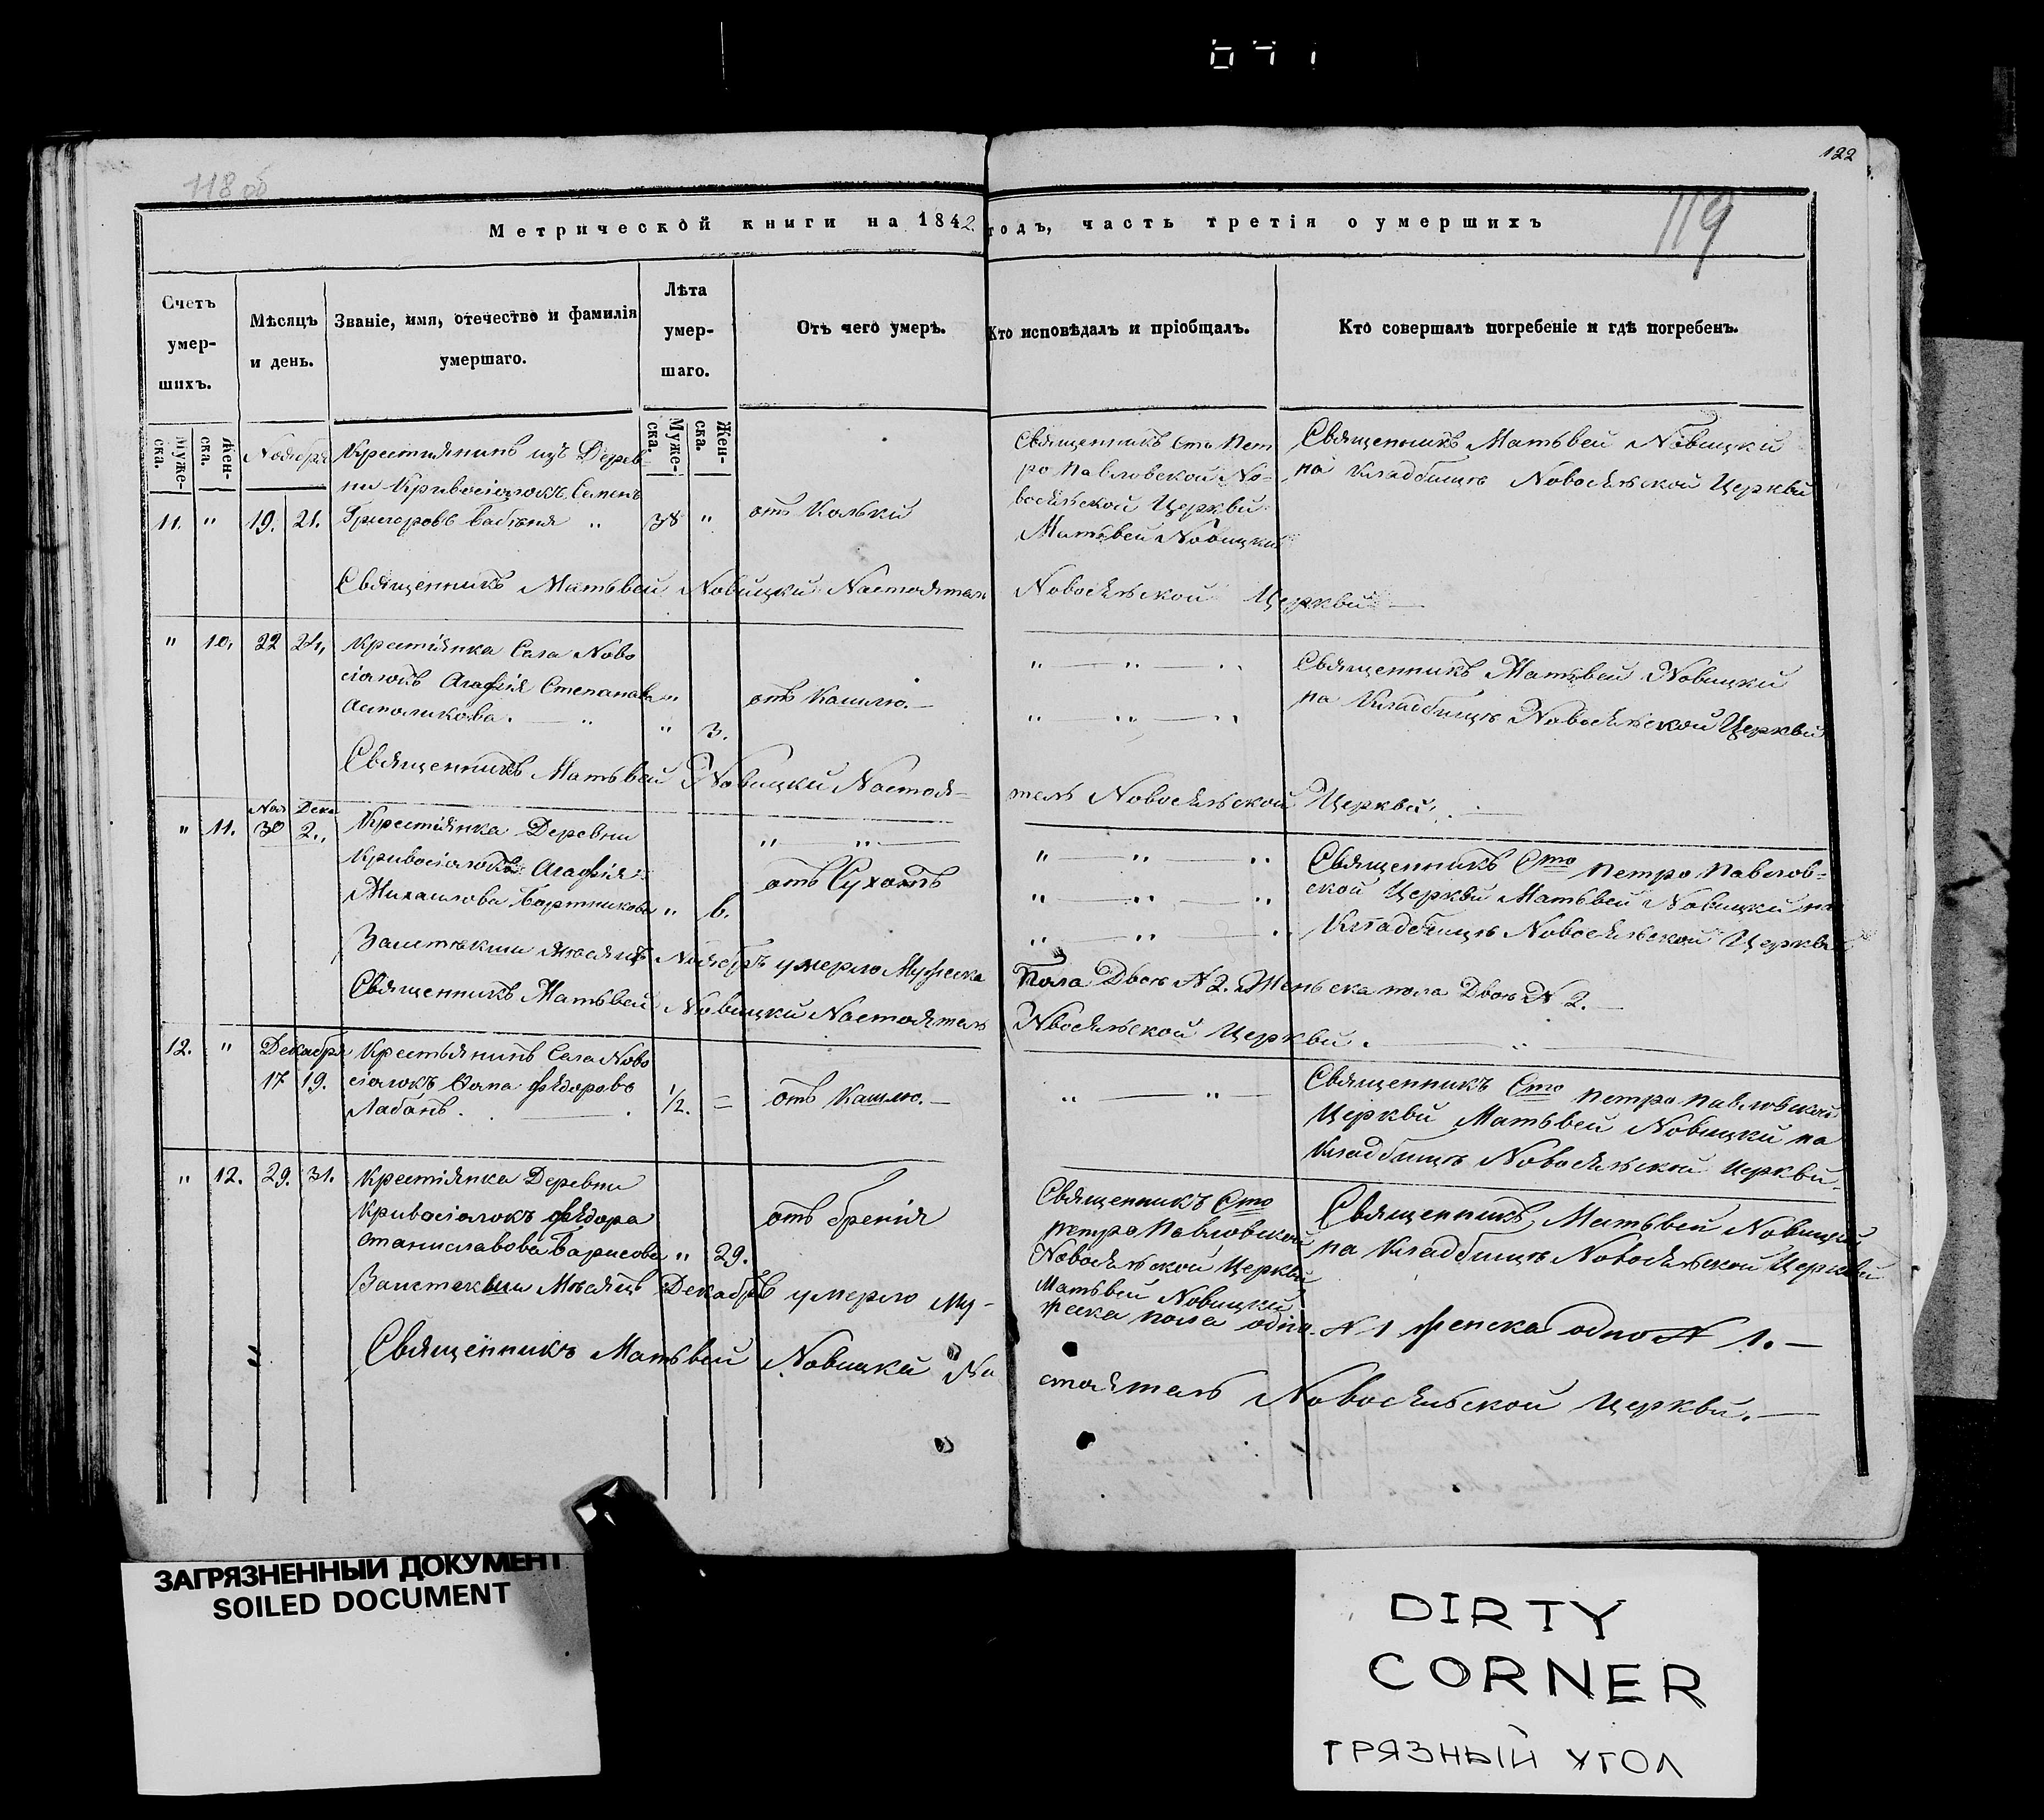 071
122
118 об
119
Метрической книги на 1842. годъ, часть третія о умершихъ
Счетъ умер-шихъ.
Мѣсяцъ и день.
Званіе, имя, отечество и фамилія умершаго.
Лѣта умер-шаго.
Отъ чего умеръ.
Кто исповѣдалъ и пріобщалъ.
Кто совершалъ погребеніе и гдѣ погребенъ.
Муже-ска.
Жен-ска.
Муже-ска.
Жен-ска.
Ноября
Крестиянинъ изъ Дерев-
ни Кривосіолокъ Семенъ
11. " 19. 21. Григоровъ " 38 " отъ Кольки
Священникъ Сто Пет
ро Павловской Но-
восѣльской Церкви
Матвей Новицкий
Священникъ Матьвей Новицки
на Кладбищѣ Новосѣльской Церкви
Священникъ Матьвей Новицки Настоятель Новосѣльской Церкви —
" 10, 22 24, Крестіянка Села Ново
сіолокъ Агафія Степанова "
" 3.
отъ Кашлю. —
" — " — "
" " — "
Священникъ Матьвей Новицки
на Кладбищѣ Новосѣльской Церкви
Священникъ Матьвей Новицки Настоя-
тель Новосѣльской Церкви. —
Ноя Дека
" 11. 30 2., Крестіянка Деревни
Кривосіолокъ Агафія
Михаилова Бортникова " 6.
" " —
отъ Сухотъ
" " "
" — " — "
" — " — "
Священникъ Сто Петро Павлов-
ской Церкви Матьвей Новицки на
Кладбищѣ Новосѣльской Церкви
Заистѣкши Мѣсяцъ Ноябрь умерло Мужеска Пола Двое N 2. Женьска пола Двое N 2. —
Священникъ Матьвей Новицки Настоятель Нвосѣльской Церкви. — "
12. " Декабря Крестьянинъ Села Ново
17 19. сіолокъ Фома Фѣдоровъ
Лабанъ. — 1/2. = отъ Кашлю. —
" — " —
Священникъ Сто Петро Павловской
Церкви Матьвей Новицки на
Кладбищѣ Новосѣльской Церкви.
" 12. 29. 31. Крестіянка Деревни
Кривосіолокъ Фѣдора
Станиславова Борисова " 29.
отъ
Священникъ Сто
Петро Павловской
Новосѣльской Церкви
Матьвей Новицки
Священникъ Матьвей Новицки
на Кладбищѣ Новосѣльской Церкви
Заистекши Мѣсяцъ Декабрь умерло Му-
жеска пола одно N 1 женска одно N 1. —
Священникъ Матьвей Новицки На
стоятель Новосѣльской Церкви. —
ЗАГРЯЗНЕННЫЙ ДОКУМЕНТ
SOILED DOCUMENT
DIRTY
CORNER
ГРЯЗНЫЙ УГОЛ